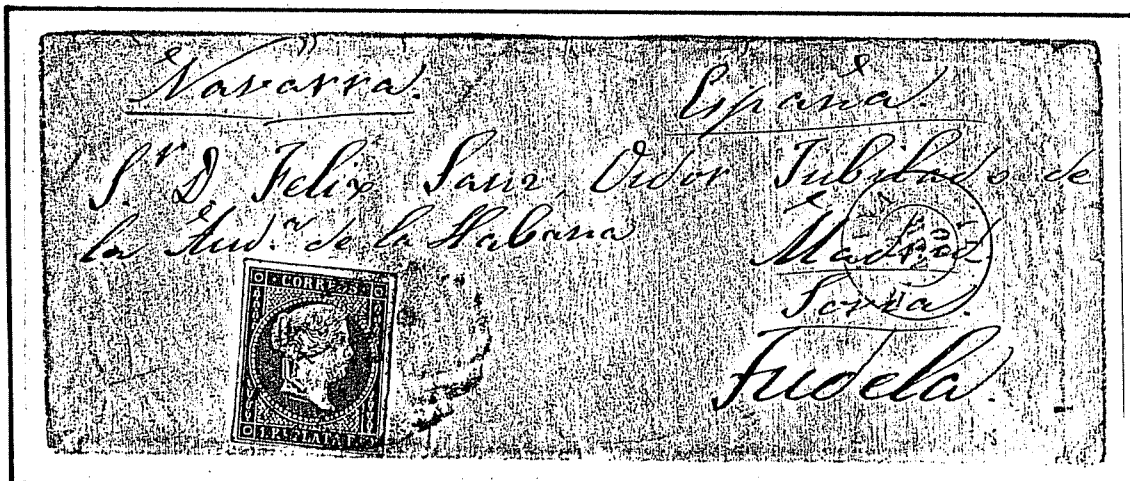 Navarra. España.
Sr. D Felix Sanz, Oidor Jubilado de
la Aud.a de la Habana Madrid
Soria.
Tudela.
CORREOS
1 Rl PLATA F.